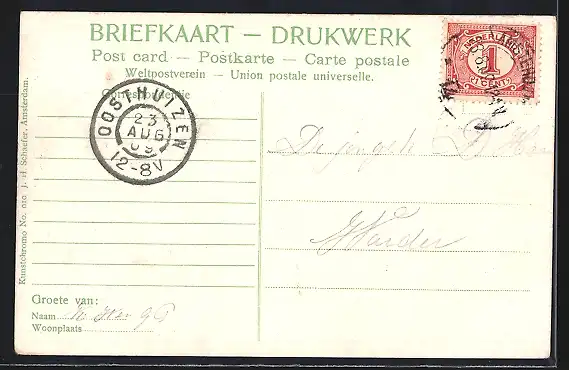 BRIEFKAART — DRUKWERK
Post card — Postkarte — Carte postale
Weltpostverein — Union postale universelle.
Correspondentie
OOSTHUIZEN
23
AUG
09
12-8V
NEDERLAND
1
1 CENT
De jongste D
Warder
Kunstchromo No. 010 J. H. Schaefer, Amsterdam.
Groete van:
Naam
Woonplaats